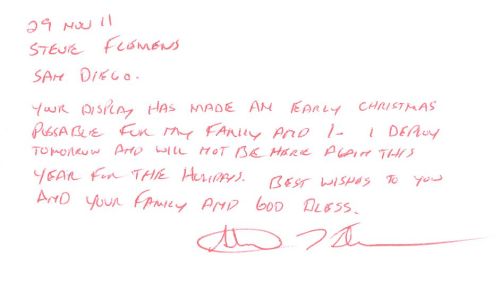 29 NOV 11
STEVE FLEMENS
SAN DIEGO.
YOUR DISPLAY HAS MADE AN EARLY CHRISTMAS
POSSABLE FOR MY FAMILY AND I- I DEPLOY
TOMORROW AND WILL NOT BE HERE AGAIN THIS
YEAR FOR THE HOLIDAYS. BEST WISHES TO YOU
AND YOUR FAMILY AND GOD BLESS.